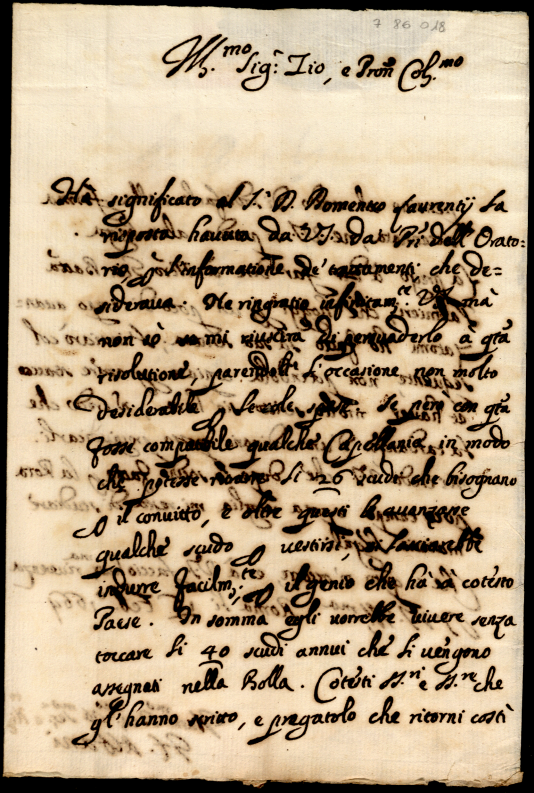 7 86 018
Ill.mo Sig.r Zio, e Pron Col.mo
Hà significato al S.r D. Domenico Laurentij la
risposta havuta da VS. da PP.ri dell'Orato=
rio p l'informatione de trattamenti che de=
siderava. Ne ringratio infinitam.te VS. mà
non sò se mi riuscirà di persuaderlo à q.ta
risolutione, parendoli l'occasione non molto
desiderabile se però con q.ta
fosse compatibile qualche Capellania in modo
che potesse li 26 scudi che bisognano
p il convitto, e oltre questi le avanzasse
qualche scudo p vestirsi, si lasciarebbe
indurre facilm.te p il genio che hà à cotesto
Paese. In somma egli vorrebbe vivere senza
toccare li 40 scudi annui che li vengono
assegnati nella Bolla. Cotesti SS.ri e SS.re che
gl'hanno scritto, e pregatolo che ritorni costì